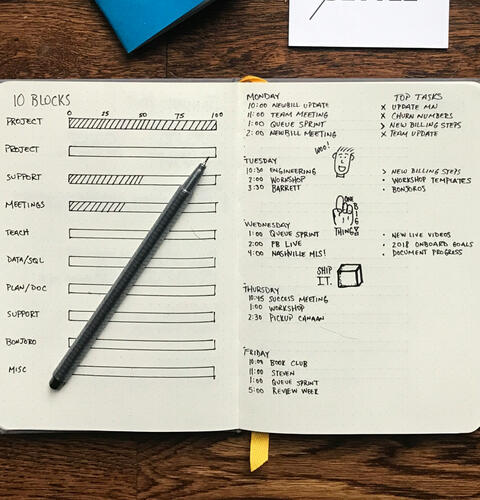 10 BLOCKS
0 25 50 75 100
PROJECT
PROJECT
SUPPORT
MEETINGS
TEACH
DATA/SQL
PLAN/DOC
SUPPORT
BONJORO
MISC
MONDAY
10:00 NEWBILL UPDATE
11:00 TEAM MEETING
1:00 QUEUE SPRINT
2:00 NEWBILL MEETING
WOO!
TUESDAY
10:30 ENGINEERING
2:00 WORKSHOP
3:30 BARRETT
ONE
BIG
THING
WEDNESDAY
1:00 QUEUE SPRINT
2:00 PB LIVE
4:00 NASHVILLE MLS!
SHIP
IT.
THURSDAY
10:45 SUCCESS MEETING
1:00 WORKSHOP
2:30 PICKUP CANAAN
FRIDAY
10:00 BOOK CLUB
11:00 STEVEN
1:00 QUEUE SPRINT
5:00 REVIEW WEEK
TOP TASKS
X UPDATE MN
X CHURN NUMBERS
> NEW BILLING STEPS
X TEAM UPDATE
> NEW BILLING STEPS
• WORKSHOP TEMPLATES
• BONJOROS
• NEW LIVE VIDEOS
• 2018 ONBOARD GOALS
• DOCUMENT PROGRESS